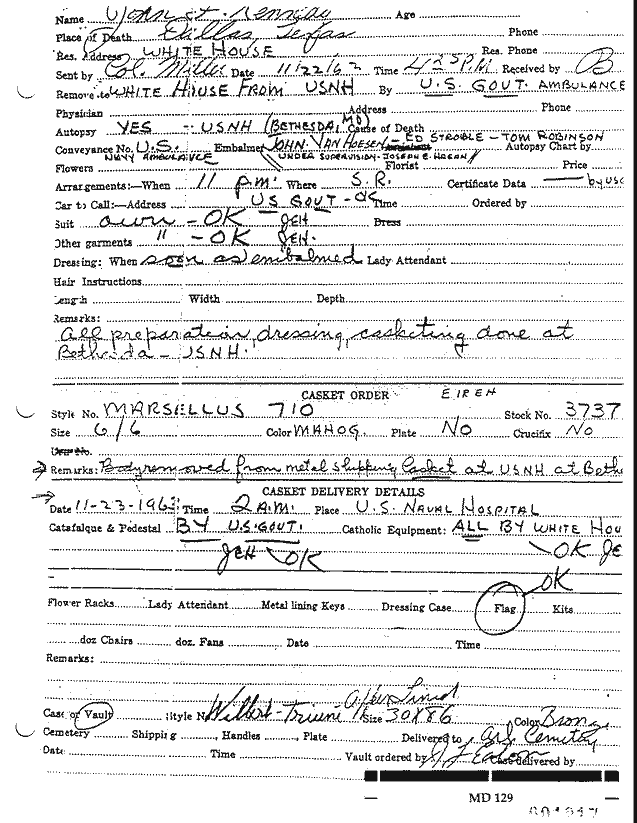 Name John F. Kennedy Age
Place of Death Dallas, Texas Phone
Res. Address WHITE HOUSE Res. Phone
Sent by Col. Miller Date 11/22/63 Time 4:25 P.M. Received by B
Remove to WHITE HOUSE FROM USNH By U.S. GOVT. AMBULANCE
Physician Address Phone
Autopsy YES - USNH (BETHESDA, MD) Cause of Death
Conveyance No. U.S. Embalmer JOHN VAN HOESEN - ED STROBLE - TOM ROBINSON Autopsy Chart by
NAVY AMBULANCE UNDER SUPERVISION - JOSEPH E. HAGAN
Flowers Florist Price
Arrangements:—When 11 P.M. Where S.R. Certificate Data — by USG
Car to Call:—Address US GOVT - OK Time Ordered by
Suit own - OK JEH Dress
Other garments " - OK JEH.
Dressing: When soon as embalmed Lady Attendant
Hair Instructions
Length Width Depth
Remarks:
All preparation, dressing, casketing done at
Bethesda - USNH.
CASKET ORDER
Style No. MARSELLUS 710 Stock No. 3737
Size 6/6 Color MAHOG. Plate NO Crucifix NO
Remarks: Body removed from metal shipping casket at USNH at Beth
CASKET DELIVERY DETAILS
Date 11-23-1963 Time 2 A.M. Place U.S. NAVAL HOSPITAL
Catafalque & Pedestal BY U.S. GOVT. Catholic Equipment: ALL BY WHITE HOU
JEH OK OK JE
OK
Flower Racks Lady Attendant Metal lining Keys Dressing Case Flag Kits
doz Chairs doz. Fans Date Time
Remarks:
Case or Vault Style No Wilbert-Triune Size 30X86 Color Bronz
Cemetery Shipping Handles Plate Delivered to Cemetery
Date Time Vault ordered by Case delivered by
MD 129